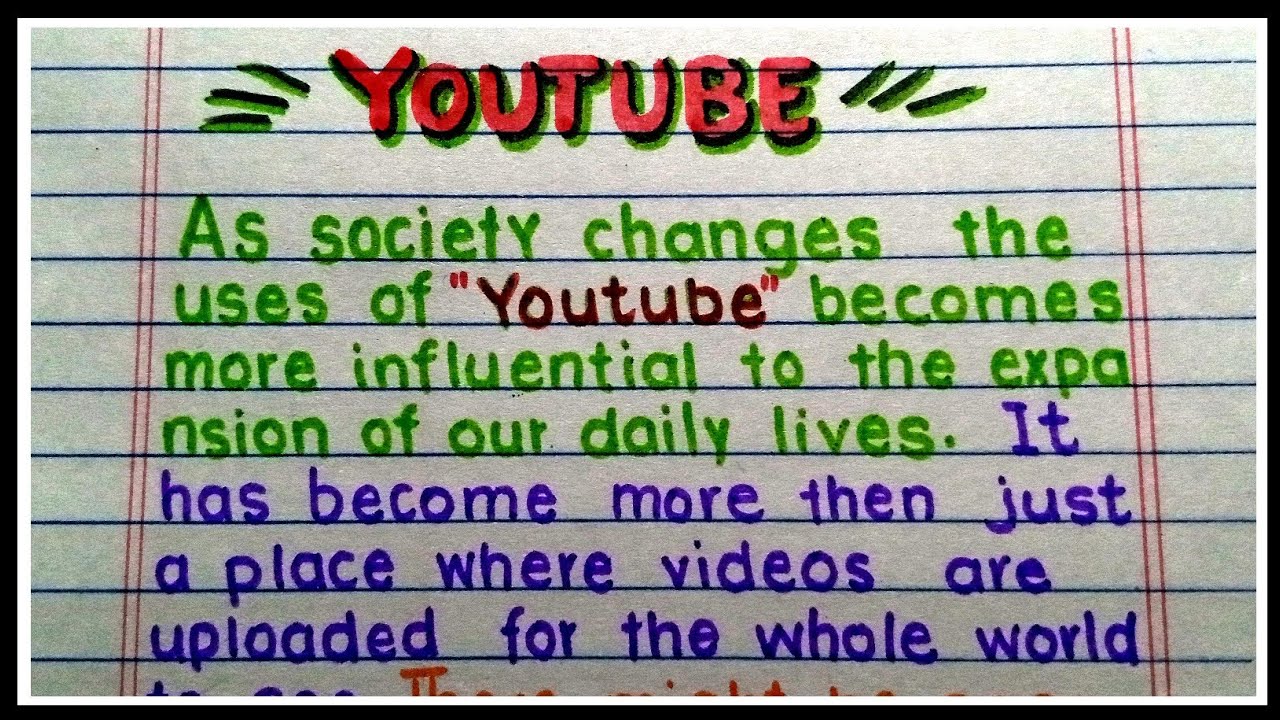 YOUTUBE
As society changes the
uses of "Youtube" becomes
more influential to the expa
nsion of our daily lives. It
has become more then just
a place where videos are
uploaded for the whole world